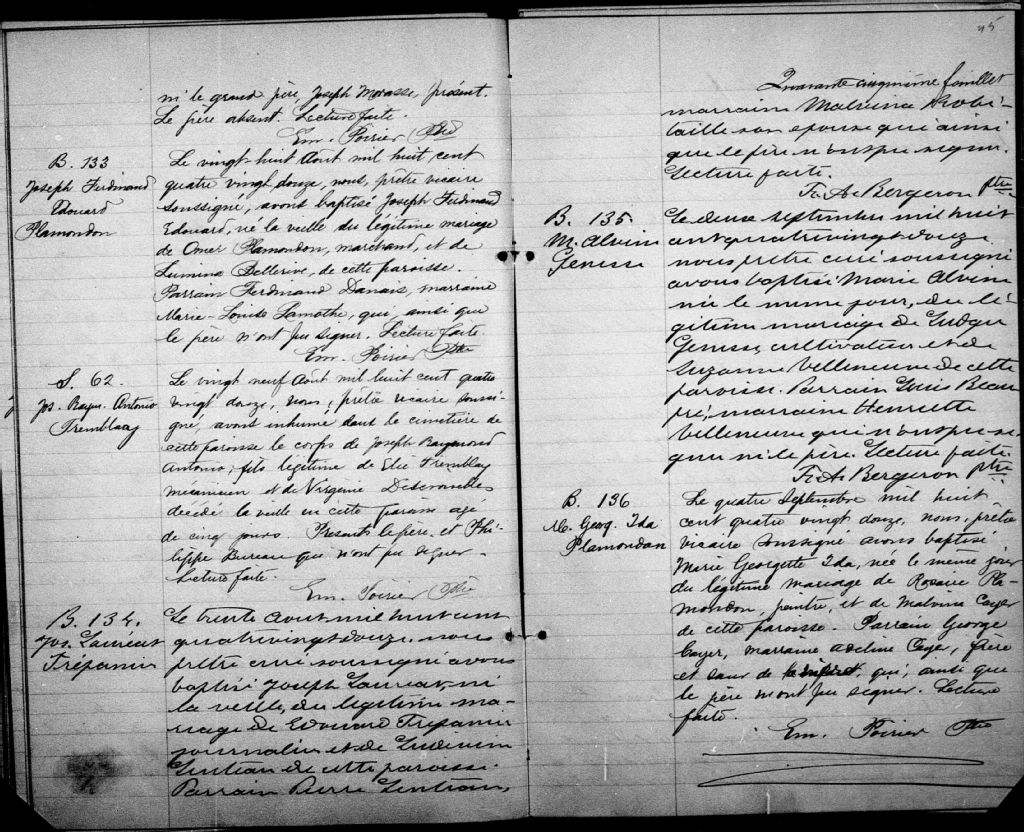 ni le grand père, Joseph Morasse, présent.
Le père absent. Lecture faite.
Em. Poirier Ptre
B. 133
Joseph Ferdinand
Edouard
Plamondon
Le vingt huit Aout mil huit cent
quatre vingt douze, nous, prêtre vicaire
soussigné, avons baptisé Joseph Ferdinand
Edouard, né la veille du légitime mariage
de Omer Plamondon, marchand, et de
Lumina Dellerive, de cette paroisse.
Parrain Ferdinand Danais, marraine
Marie-Louise Lamothe, qui, ainsi que
le père n'ont pu signer. Lecture faite.
Em. Poirier Ptre
S. 62.
Jos. Raym. Antonio
Tremblay
Le vingt neuf Aout mil huit cent quatre
vingt douze, nous, prêtre vicaire soussi-
gné, avons inhumé dans le cimetière de
cette paroisse le corps de Joseph Raymond
Antonio, fils légitime de Elie Tremblay
mécanicien et de Virginie
décédé la veille en cette paroisse agé
de cinq jours. Présents le père, et Phi-
lippe Bureau qui n'ont pu signer.
Lecture faite.
Em. Poirier Ptre
B. 134.
Jos. Lauréat
Trépanier
Le trente aout mil huit cent
quatrevingt douze nous
prêtre curé soussigné avons
baptisé Joseph Lauréat, né
la veille, du légitime ma-
riage de Edouard Trépanier
journalier et de Ludivin
Gentian de cette paroisse.
Parrain Pierre Gentian,
45
Quarante cinquième feuillet
marraine Malvina Robi-
taille son épouse qui ainsi
que le père n'ont pu signer.
Lecture faite.
F. A. Bergeron ptre
B. 135
M. Alvine
Genesse
Le deuse septembre mil huit
cent quatrevingt douze
nous prêtre curé soussigné
avons baptisé Marie Alvine
née le meme jour, du lé-
gitime mariage de Ludger
Genesse, cultivateur et de
Suzanne Villeneuve de cette
paroisse. Parrain Louis Beau
pré, marraine Henriette
Villeneuve qui n'ont pu si-
gner ni le père. Lecture faite.
F. A. Bergeron ptre
B. 136
M. Georg. Ida
Plamondon
Le quatre Septembre mil huit
cent quatre vingt douze, nous, prêtre
vicaire soussigné avons baptisé
Marie Georgette Ida, née le même jour
du légitime mariage de Rosario Pla-
mondon, peintre, et de Malvina Cayer
de cette paroisse. Parrain George
Cayer, marraine Adeline Cayer, frère
et sœur de qui, ainsi que
le père n'ont pu signer. Lecture
faite.
Em. Poirier Ptre